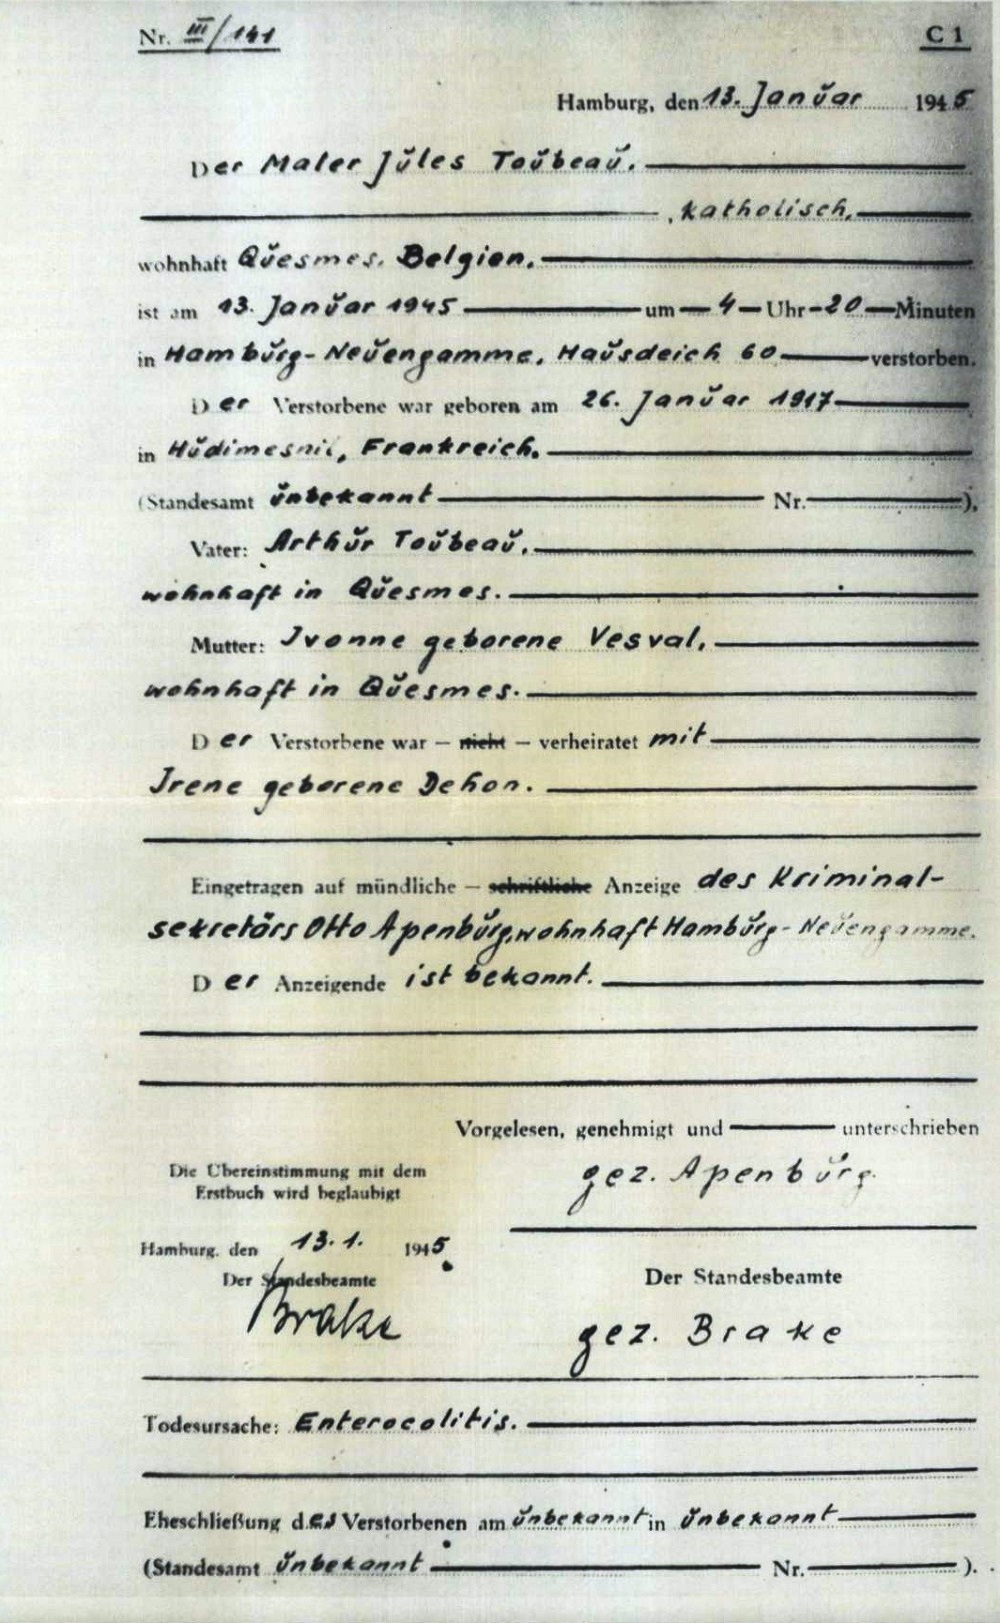 Nr. III/141 C 1
Hamburg, den 13. Januar 1945
Der Maler Jules Toubeau.
, katholisch,
wohnhaft Quesmes, Belgien,
ist am 13. Januar 1945 um 4 Uhr 20 Minuten
in Hamburg-Neuengamme, Hausdeich 60 verstorben.
Der Verstorbene war geboren am 26. Januar 1917
in Hudimesnil, Frankreich.
(Standesamt unbekannt Nr. ),
Vater: Arthur Toubeau,
wohnhaft in Quesmes.
Mutter: Ivonne geborene Vesval,
wohnhaft in Quesmes.
Der Verstorbene war – nicht – verheiratet mit
Irene geborene Dehon.
Eingetragen auf mündliche – schriftliche Anzeige des Kriminal-
sekretärs Otto Apenburg, wohnhaft Hamburg-Neuengamme.
Der Anzeigende ist bekannt.
Vorgelesen, genehmigt und unterschrieben
gez. Apenburg.
Die Übereinstimmung mit dem
Erstbuch wird beglaubigt
Hamburg, den 13. 1. 1945
Der Standesbeamte
Brake
Der Standesbeamte
gez. Brake
Todesursache: Enterocolitis.
Eheschließung des Verstorbenen am unbekannt in unbekannt
(Standesamt unbekannt Nr. ).